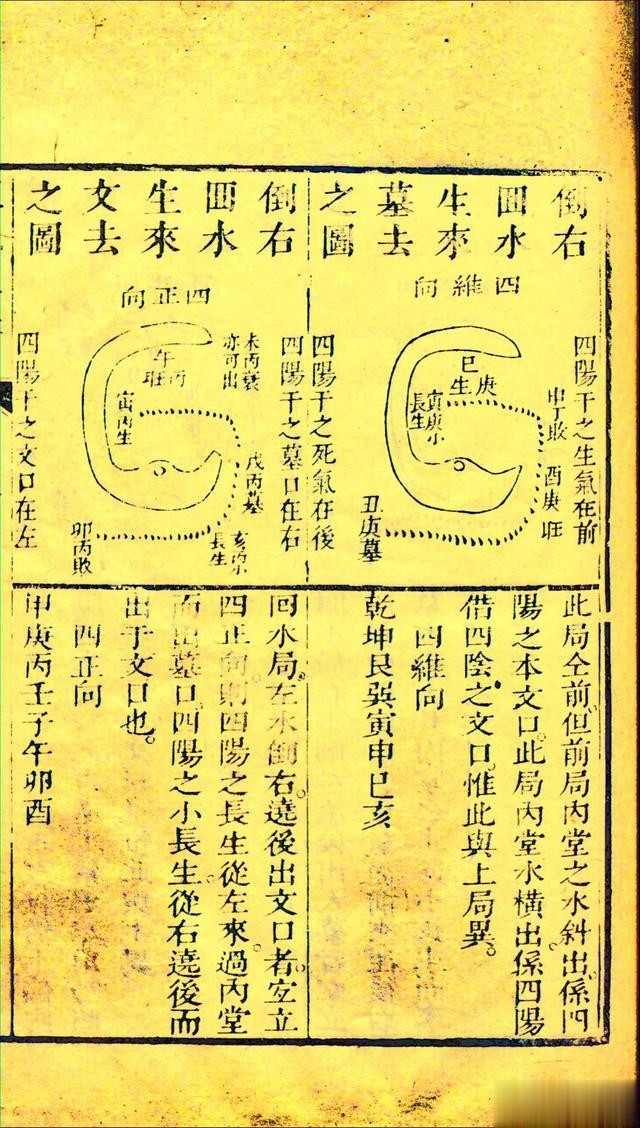 倒右
囬水
生來
墓去
之圖
四維向
四陽干之生氣在前
申丁敗
酉庚旺
巳庚生
寅庚小
長生
丑庚墓
四陽干之死氣在後
此局仝前。但前局內堂之水斜出。係四
陽之本文口。此局內堂水橫出。係四陽
借四陰之文口。惟此與上局異。
四維向
乾坤艮巽寅申巳亥
倒右
囬水
生來
文去
之圖
四正向
四陽干之墓口在右
未丙衰
亦可出
午丙旺
寅丙生
戌丙墓
亥
長生
卯丙敗
四陽干之文口在左
囬水局。左水倒右。遶後出文口者。宜立
四正向。則四陽之長生從左來過內堂
而出墓口。四陽之小長生。從右遶後而
出于文口也。
四正向
甲庚丙壬子午卯酉